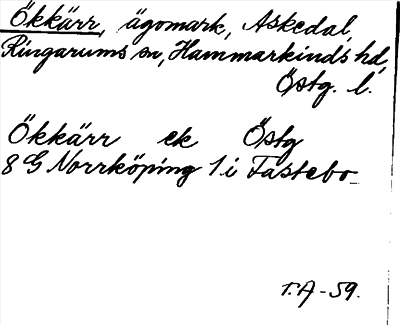 Ökkärr, ägomark, Askedal,
Ringarums sn, Hammarkinds hd,
Östg. l.
Ökkärr ek Östg
8 G Norrköping 1 i Fastebo
T.A-59.